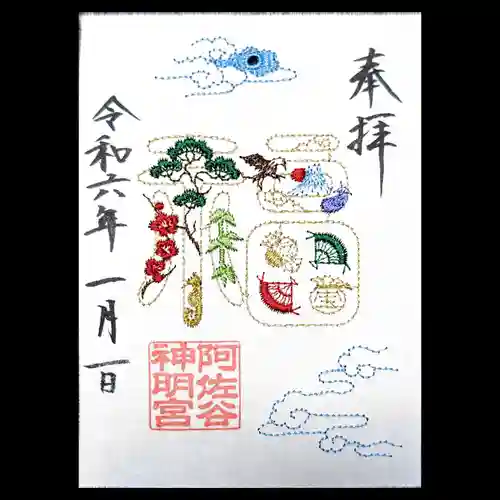 奉拝
福
阿佐谷
神明宮
令和六年 一月一日